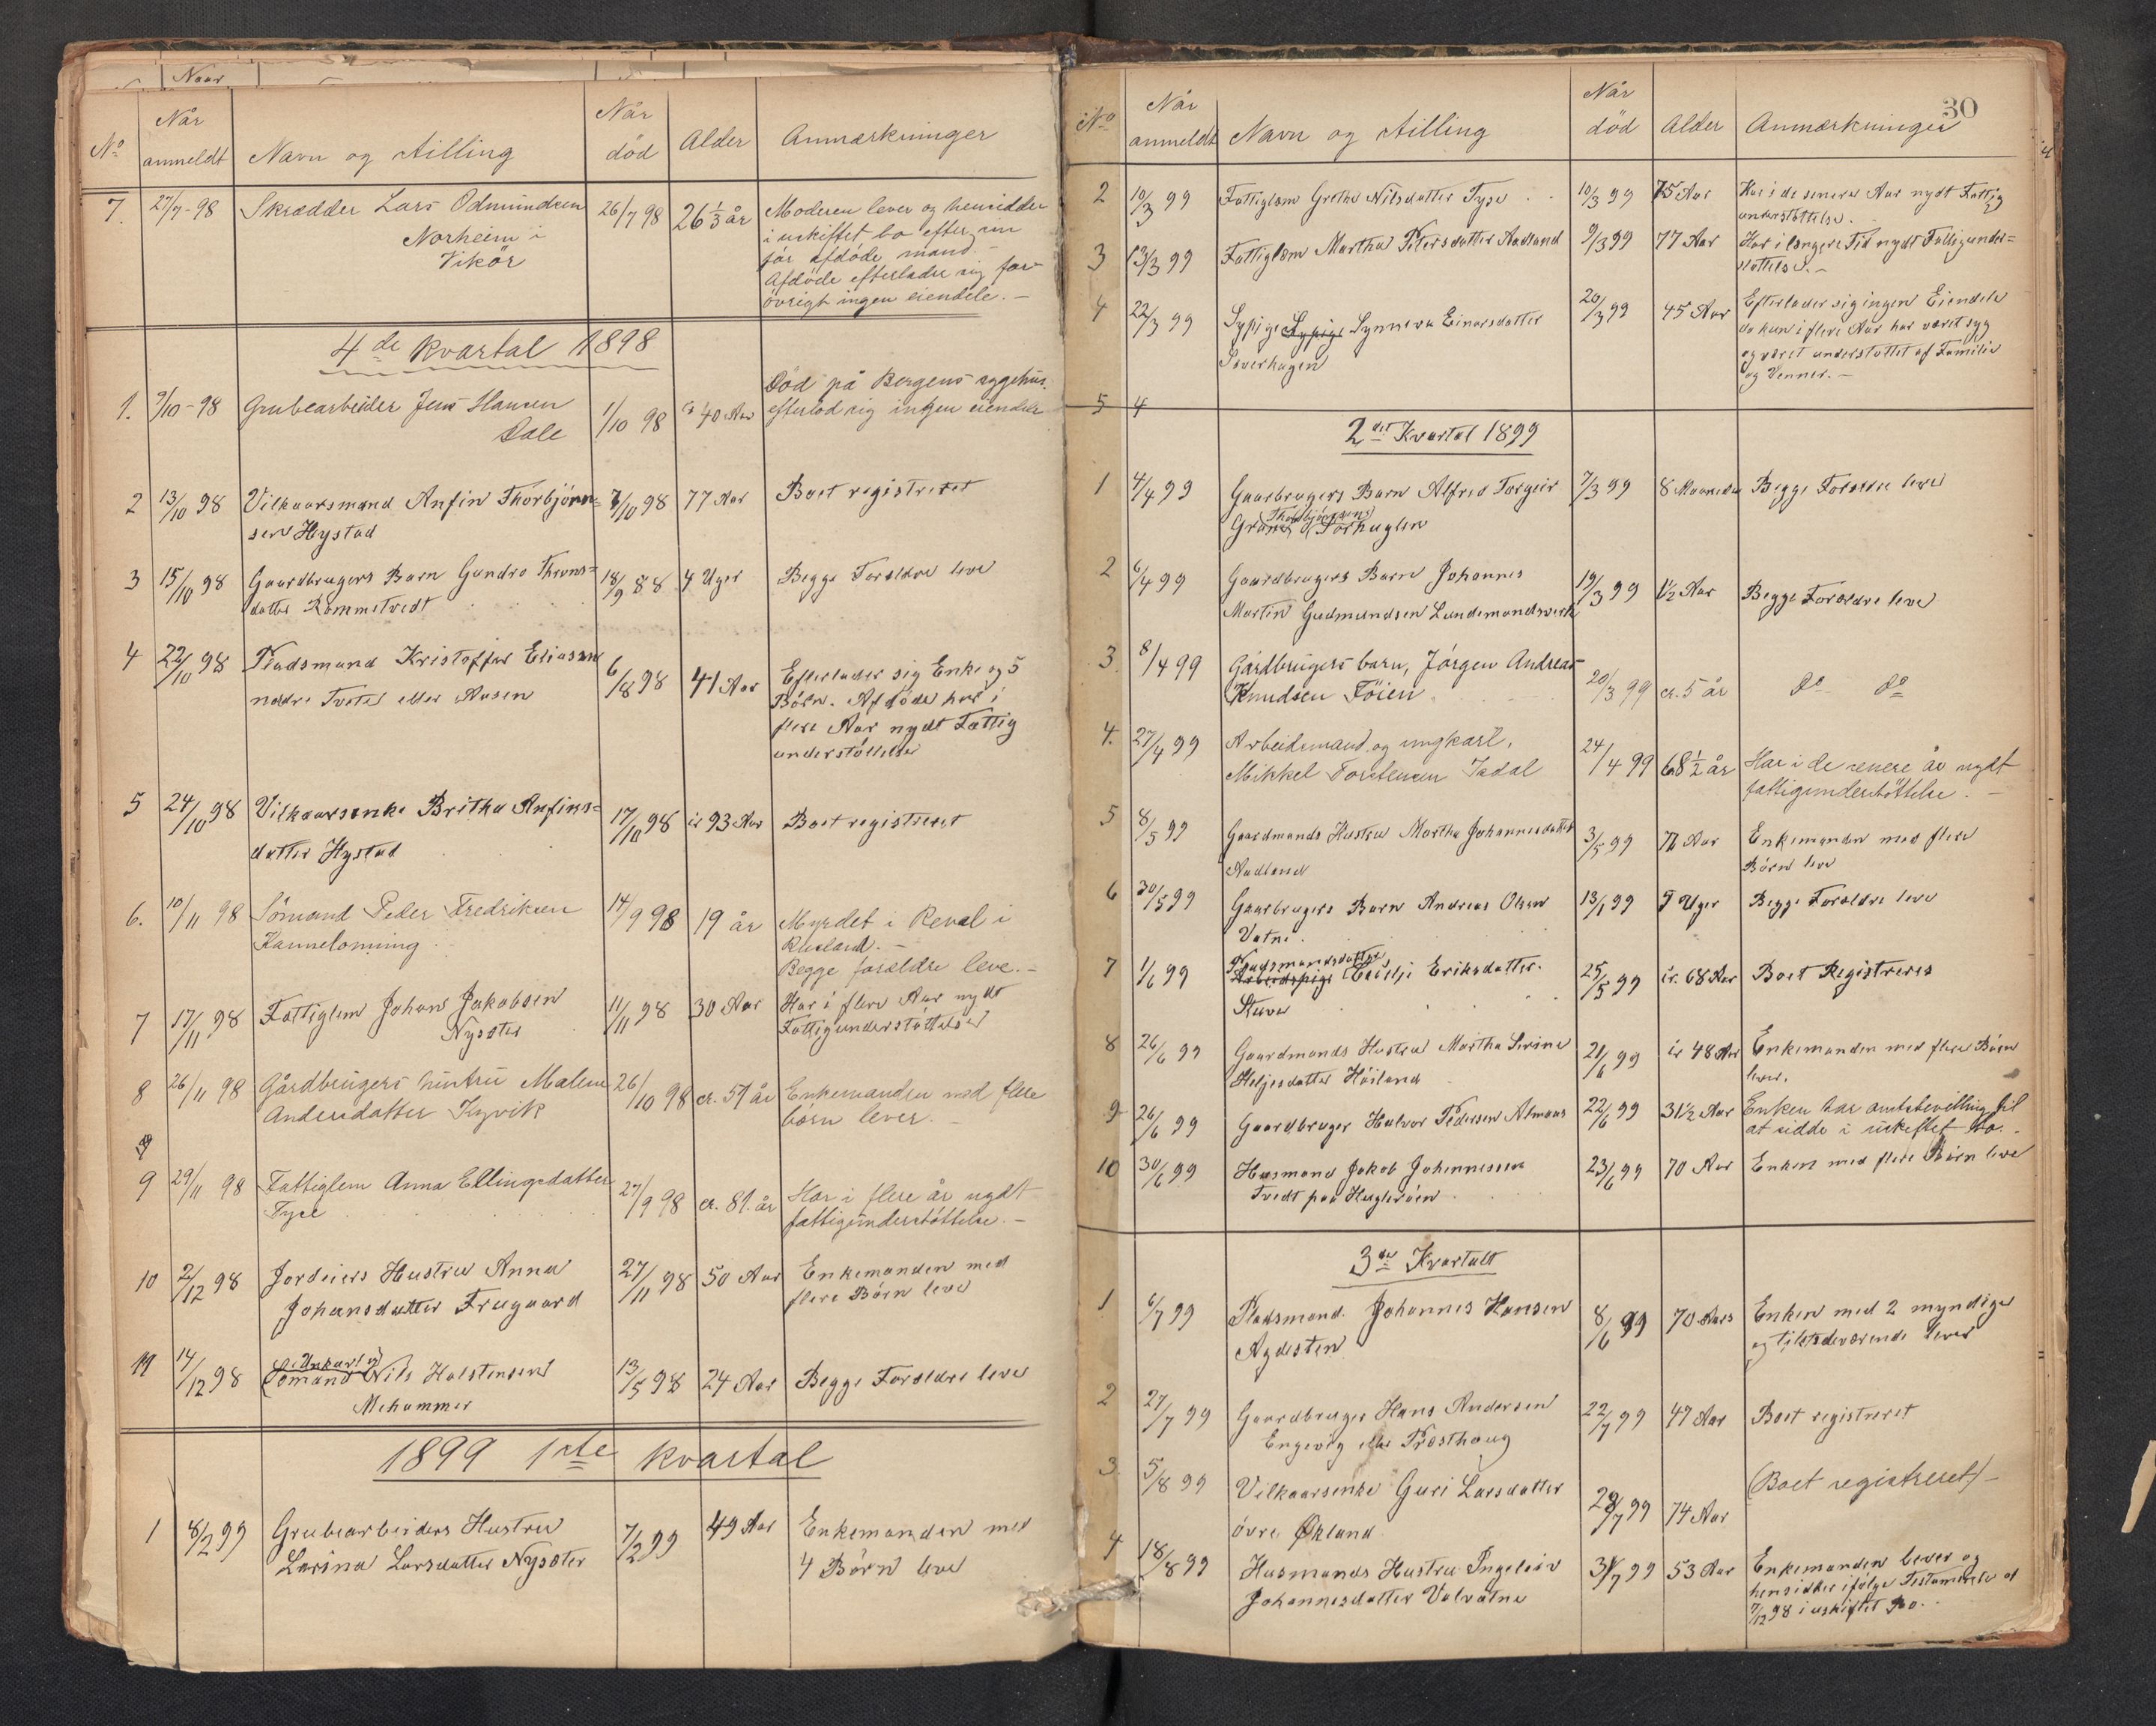 Naar
Når
Når
No anmeldt Navn og stilling død Alder Anmærkninger
7. 27/7-98 Skrædder Lars Odmundsen 26/7 98 26 1/3 år Moderen lever og hensidder
Norheim i i uskiftet bo efter sin
Vikör før afdöde mand.
Afdöde efterlader sig for
övrigt ingen eiendele. -
4de kvartal 1898
Död på Bergens sygehus,
1. 9/10-98 Grubearbeider Jens Hansen 1/10 98 40 Aar efterlod sig ingen eiendele
Dale
2 13/10 98 Vilkaarsmand Anfin Thorbjörn= 7/10 98 77 Aar Boet registreret
sen Hystad
3 15/10 98 Gaardbrugers Barn Gundro Throns= 18/9 88 4 Uger Begge Forældre leve
datter Rommetvedt
4 22/10 98 Pladsmand Kristoffer Eliassen 6/8 98 41 Aar Efterlader sig Enke og 5
nedre Tvete eller Aasen Börn. Afdöde har i
flere Aar nydt Fattig
understöttelse
5 24/10 98 Vilkaarsenke Britha Anfins= 17/10 98 ir 93 Aar Boet registreret
datter Hystad
6. 10/11 98 Sömand Peder Fredriksen 14/9 98 19 år Myrdet i Reval i
Kannelönning Rusland. -
Begge forældre leve. -
7 17/11 98 Fattiglem Johan Jakobsen 11/11 98 30 Aar Har i flere Aar nydt
Nysæter Fattigunderstöttelse
8 26/11 98 Gårdbrugers hustru Malene 26/10 98 cr. 57 år Enkemanden med flere
Andersdatter Tysvik börn lever. -
9
9 29/11 98 Fattiglem Anna Ellingsdatter 27/9 98 cr. 81. år Har i flere år nydt
Tyse fattigunderstöttelse. -
10 2/12 98 Jordeiers Hustru Anna 27/11 98 50 Aar Enkemanden med
Johansdatter Frugaard flere Börn leve
(Unkarl)
11 14/12 98 Sömand Nils Halstensen 13/5 98 24 Aar Begge Forældre leve
Mehammer
1899 1ste kvartal
1 8/2 99 Grubearbeiders Hustru 7/2 99 49 Aar Enkemanden med
Larina Larsdatter Nysæter 4 Börn leve
30
Når Når
No anmeldt Navn og stilling död Alder Anmærkninger
2 10/3 99 Fattiglem Grethe Nilsdatter Tyse 10/3 99 75 Aar Har i de senere Aar nydt Fattig
understöttelse.
3 13/3 99 Fattiglem Martha Petersdatter Aadland 9/3 99 77 Aar Har i længere Tid nydt Fattigunder=
stöttelse. -
4 22/3 99 Sypige Sypige Synneva Einarsdatter 20/3 99 45 Aar Efterlader sig ingen Eiendele
Söverhagen da hun i flere Aar har været syg
og været understöttet af Familie
og Venner. -
5 4
2det Kvartal 1899
1 4/4 99 Gaarbrugers Barn Alfred Torgeir 7/3 99 8 Maaneder Begge Forældre leve
(Thorbjörnsen)
Grönn Torhuglen
2 6/4 99 Gaardbrugers Barn Johannes 19/3 99 1 1/2 Aar Begge Forældre leve
Martin Gudmundsen Landemandsverk
3. 8/4 99 Gårdbrugers barn, Jörgen Andreas 20/3 99 cr. 5 år Do Do
Knudsen Töien
4. 27/4 99 Arbeidsmand og ungkarl, 24/4 99 68 1/2 år Har i de senere år nydt
Mikkel Torstensen Isdal fattigunderstöttelse. -
5 8/5 99 Gaardmands Hustru Martha Johannesdatter 3/5 99 72 Aar Enkemanden med flere
Aadland Börn leve
6 30/5 99 Gaarbrugers Barn Andreas Olsen 13/1 99 7 Uger Begge Forældre leve
Vatne
Pladsmandsdatter
7 1/6 99 Arbeidspige Cecilje Eriksdatter 25/5 99 ir. 68 Aar Boet Registreres
Stuve
8 26/6 99 Gaardmands Hustru Martha Serine 21/6 99 ir 48 Aar Enkemanden med flere Börn
Heljesdatter Höiland lever.
9 26/6 99 Gaardbruger Halvor Pedersen Almaas 22/6 99 31 1/2 Aar Enken har amtsbevilling til
at sidde i uskiftet bo. -
10 30/6 99 Husmand Jakob Johannessen 23/6 99 70 Aar Enken med flere Börn leve
Tvedt paa Huglesöen
3de Kvartalt
1 6/7 99 Pladsmand Johannes Hansen 8/6 99 70 Aars Enken med 2 myndige
Agdesten og tilstedeværende lever
2 27/7 99 Gaardbruger Hans Andersen 22/7 99 47 Aar Boet registreret
Engevig eller Prosthaug
3. 5/8 99 Vilkaarsenke Guri Larsdatter 29/7 99 74 Aar (Boet registreret) -
övre Økland
4 18/8 99 Husmands Hustru Ingeleiv 31/7 99 53 Aar Enkemanden lever og
Johannesdatter Valvatne hensidder ifölge Testamente af
7/12 98 i uskiftet Bo.